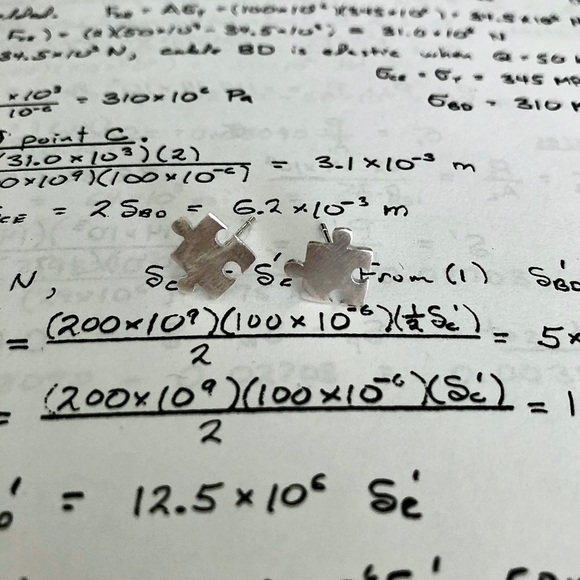 = (100×10⁻⁶)(345×10⁶) = 34.5×10³ N
= (2)(50×10³ - 34.5×10³) = 31.0×10³ N
34.5×10³ N, cable BD is elastic when Q = 50
σCE = σY = 345
×10³/10⁻⁶ = 310×10⁶ Pa σBD = 310 M
point C.
(31.0×10³)(2)/0×10⁹)(100×10⁻⁶) = 3.1×10⁻³ m
CE = 2δBD = 6.2×10⁻³ m
N, δc - δ'c From (1) δ'BD
= (200×10⁹)(100×10⁻⁶)(½δc')/2 = 5×
= (200×10⁹)(100×10⁻⁶)(δc')/2 = 1
' = 12.5×10⁶ δc'